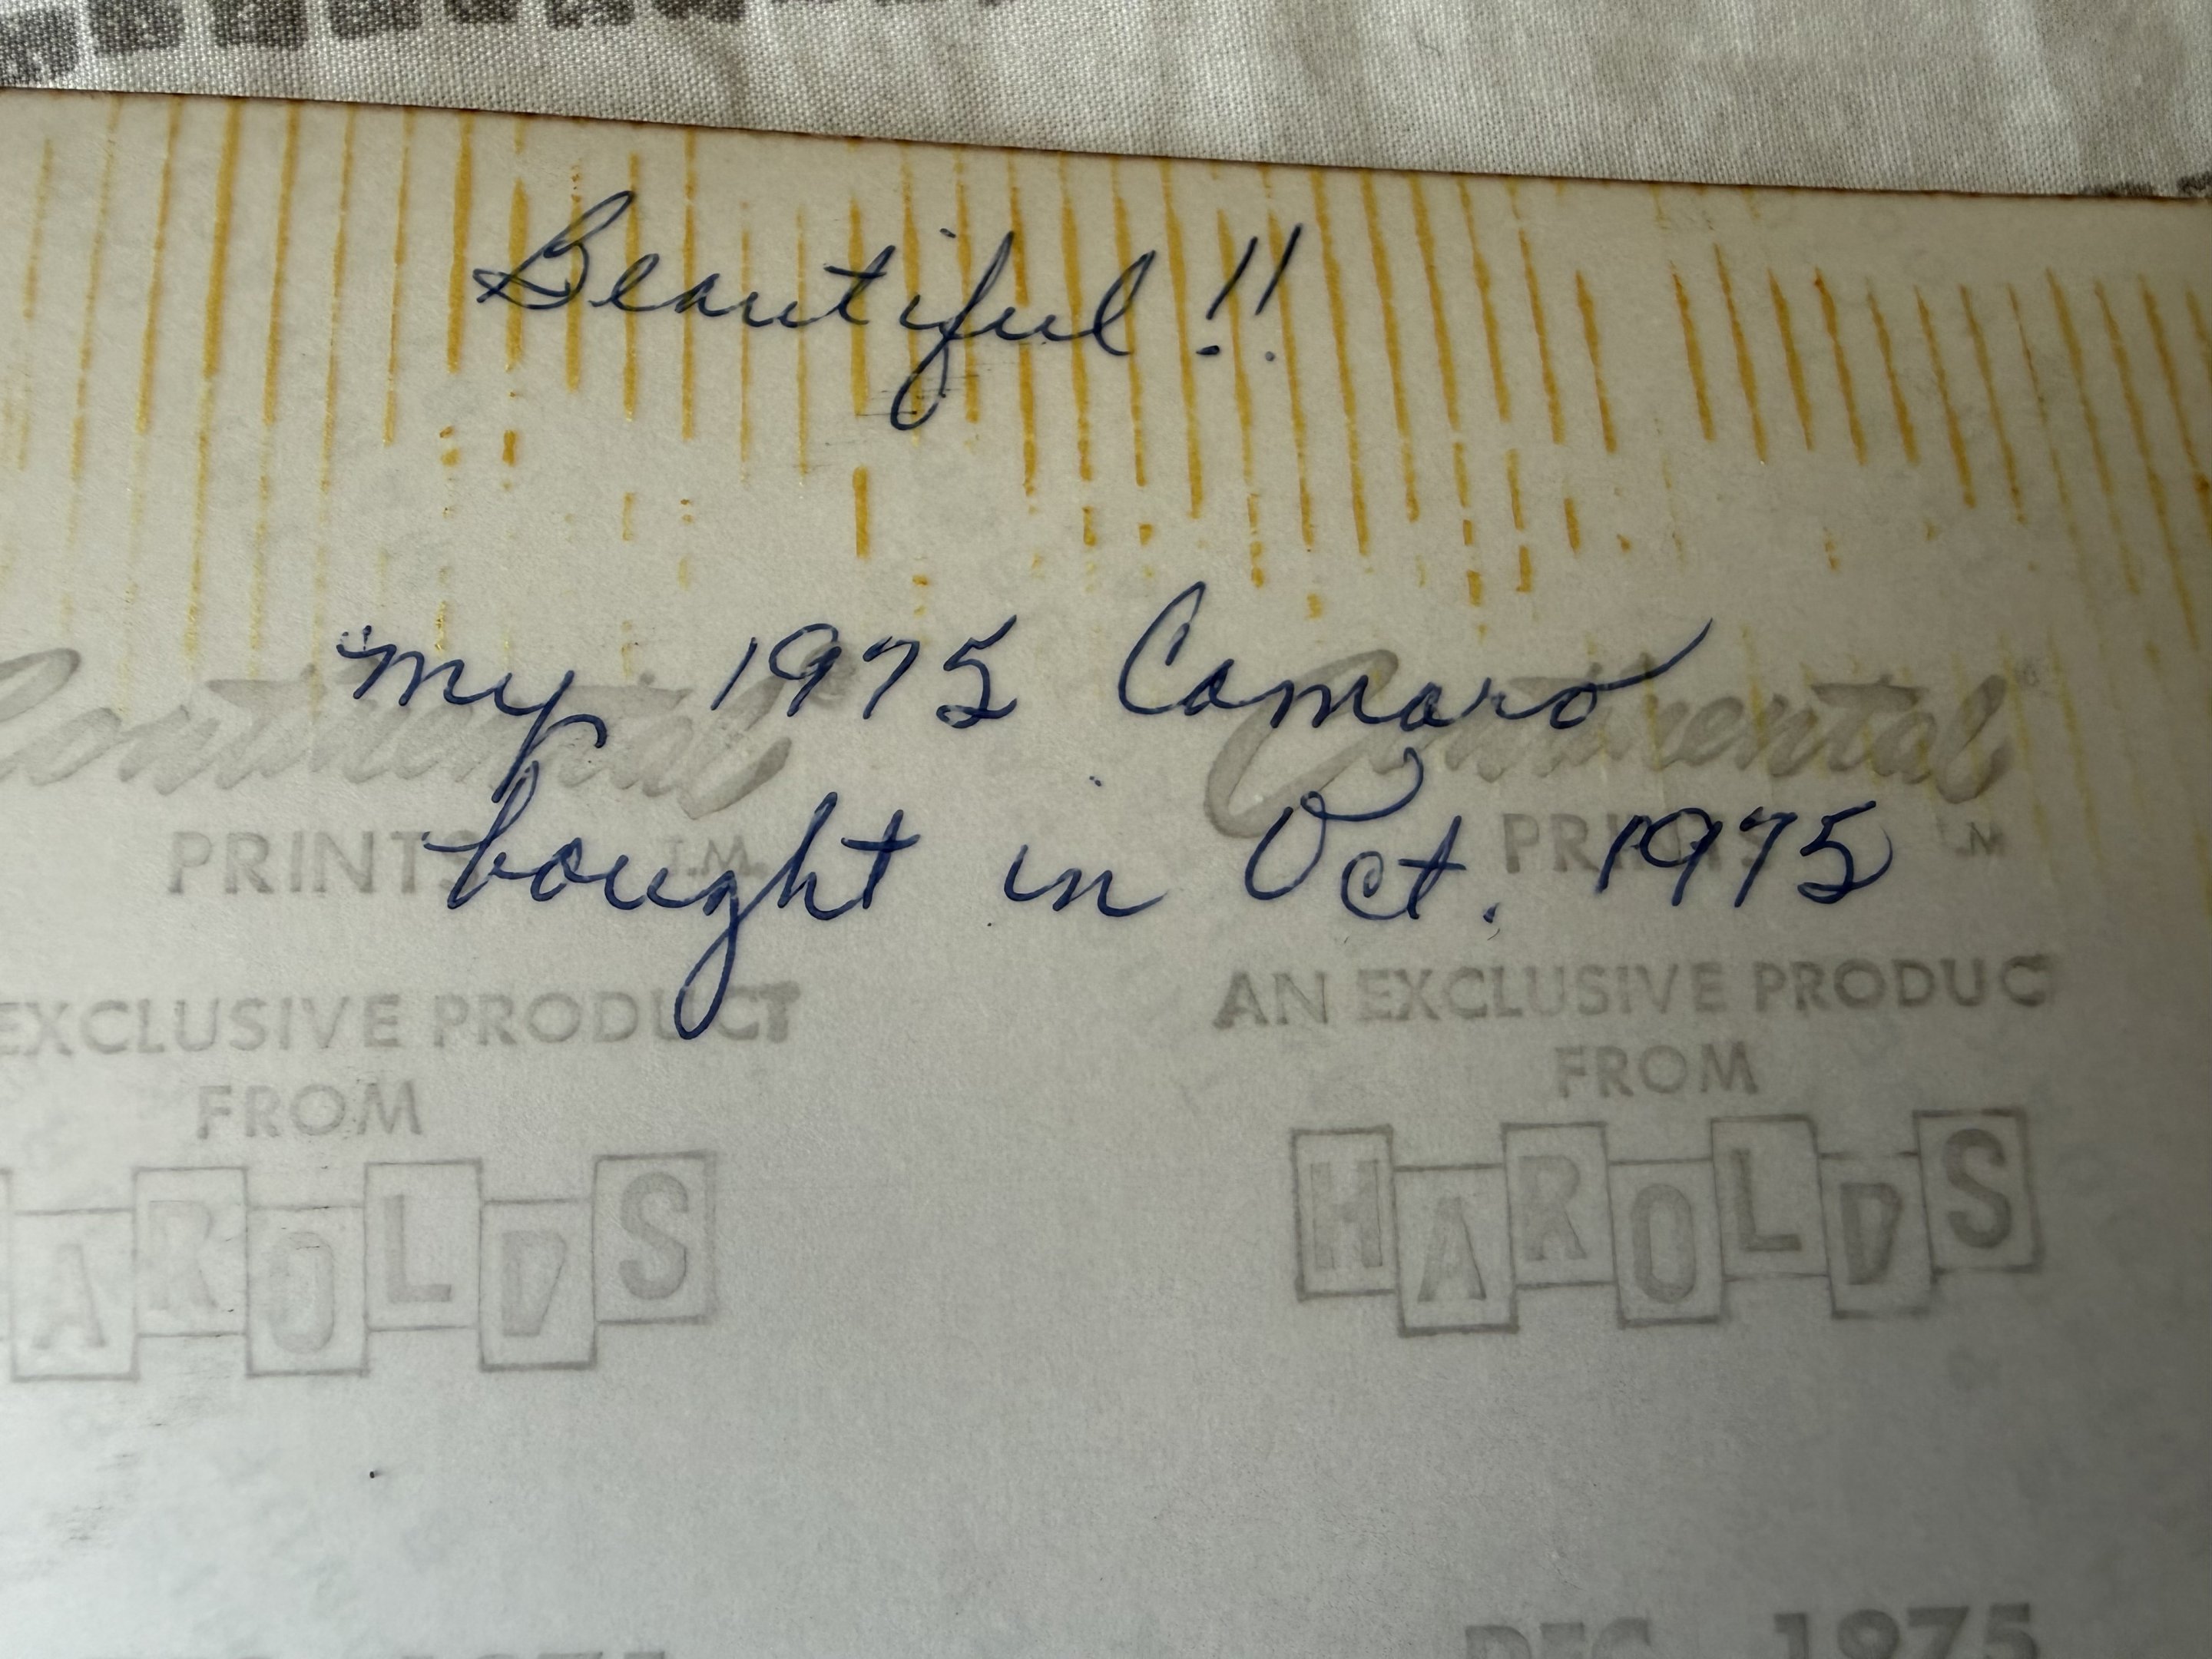 Beautiful!!
my 1975 Camaro
bought in Oct. 1975
Continental
PRINTS T.M.
EXCLUSIVE PRODUCT
FROM
AROLDS
Continental
PRINTS T.M.
AN EXCLUSIVE PRODUC
FROM
HAROLDS
DEC 1975